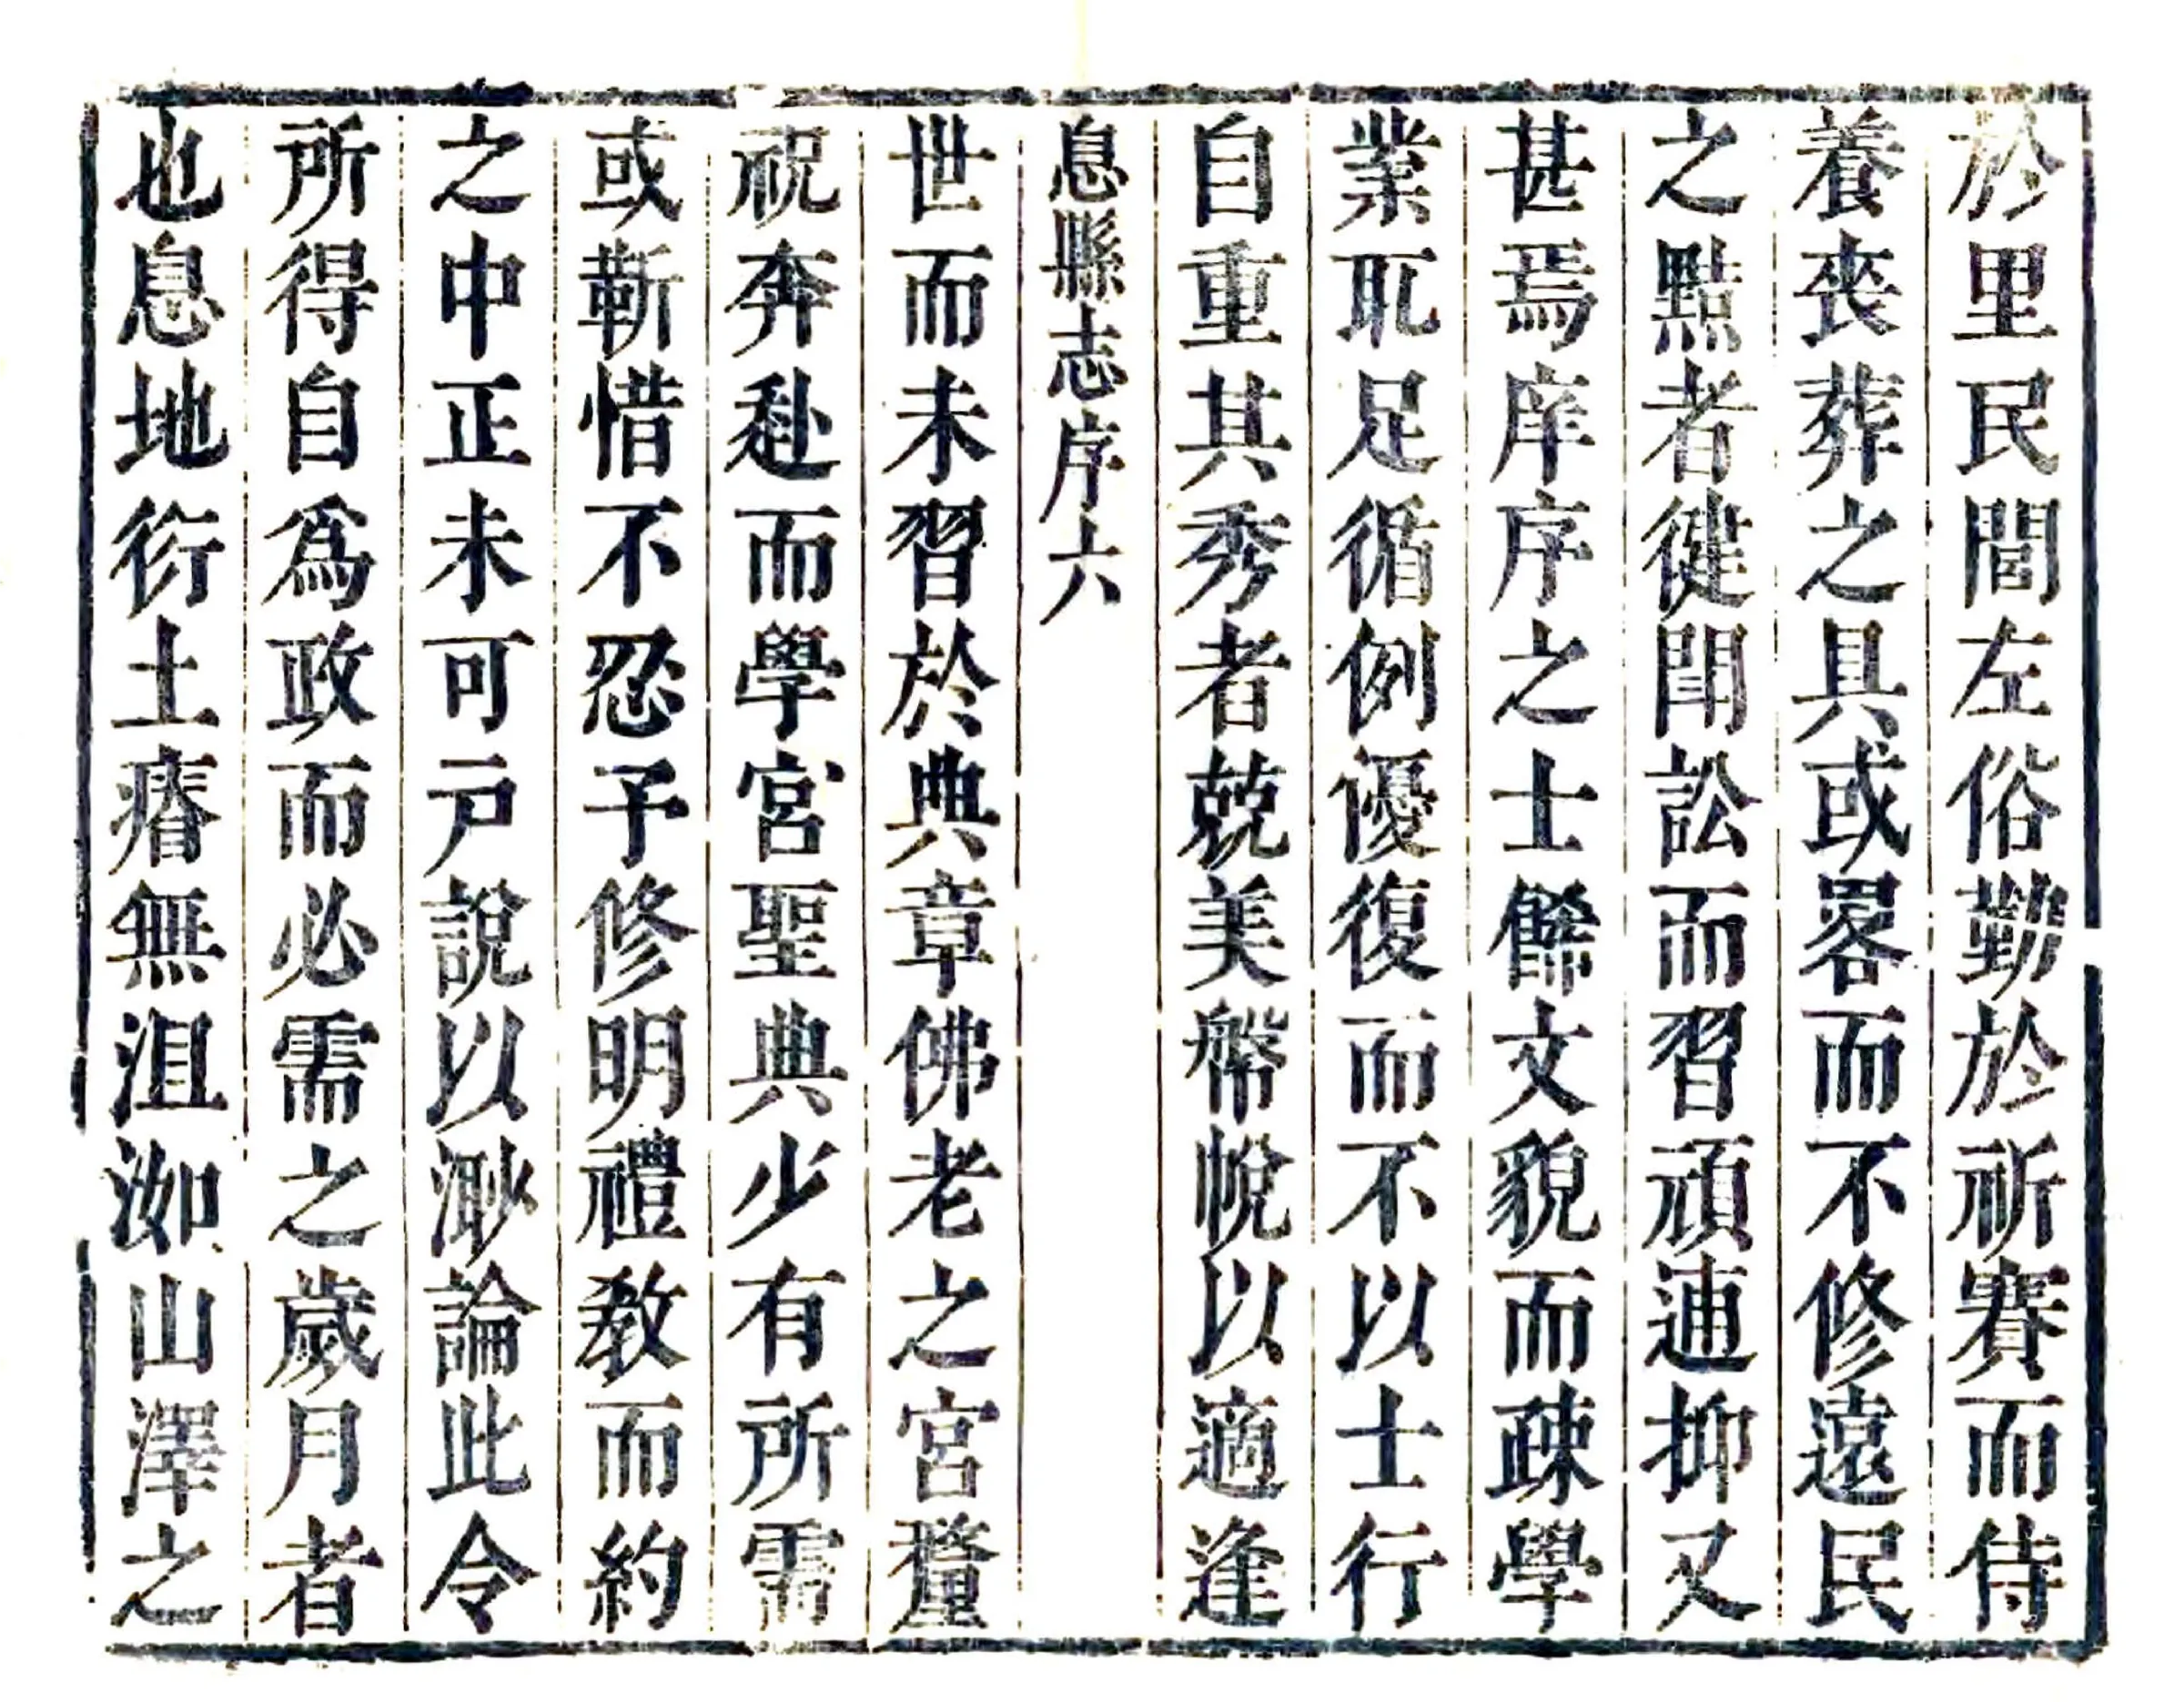 於里民閭左俗勤於祈賽而侍
養喪葬之具或畧而不修遠民
之黠者健閧訟而習頑逋抑又
甚焉庠序之士餙文貌而疎學
業恥足循例優復而不以士行
自重其秀者兢美槃帨以適逢
息縣志序六
世而未習於典章佛老之宮釐
祝奔赴而學宮聖典少有所需
或靳惜不忍予修明禮敎而約
之中正未可戸說以渺論此令
所得自爲政而必需之歲月者
也息地衍土瘠無沮洳山澤之